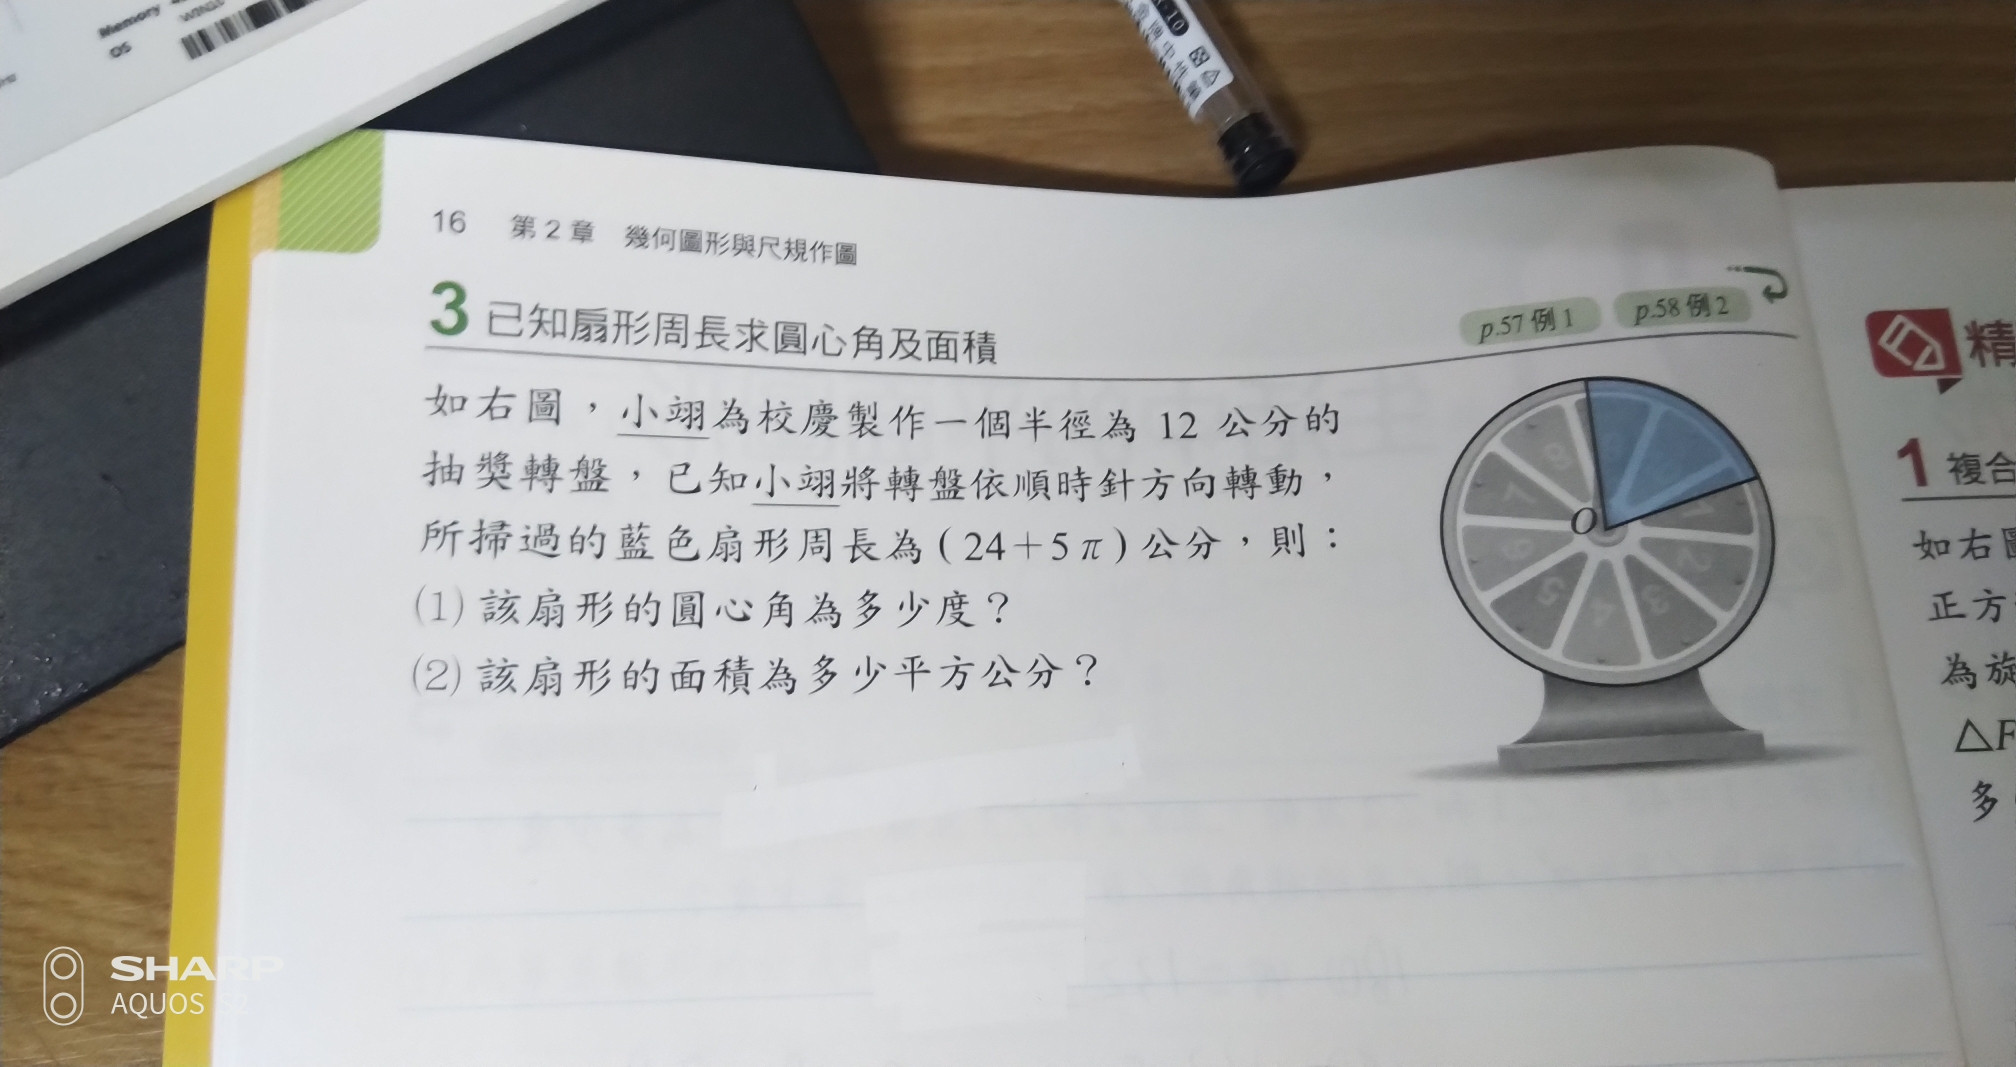 Memory
OS
WIN10
16 第2章 幾何圖形與尺規作圖
3 已知扇形周長求圓心角及面積
p.57 例1 p.58 例2
如右圖，小翊為校慶製作一個半徑為 12 公分的
抽獎轉盤，已知小翊將轉盤依順時針方向轉動，
所掃過的藍色扇形周長為（24＋5π）公分，則：
(1) 該扇形的圓心角為多少度？
(2) 該扇形的面積為多少平方公分？
O
8
7
6
5
4
3
2
1
精
1 複合
如右圖
正方
為旋
△F
多
SHARP
AQUOS S2